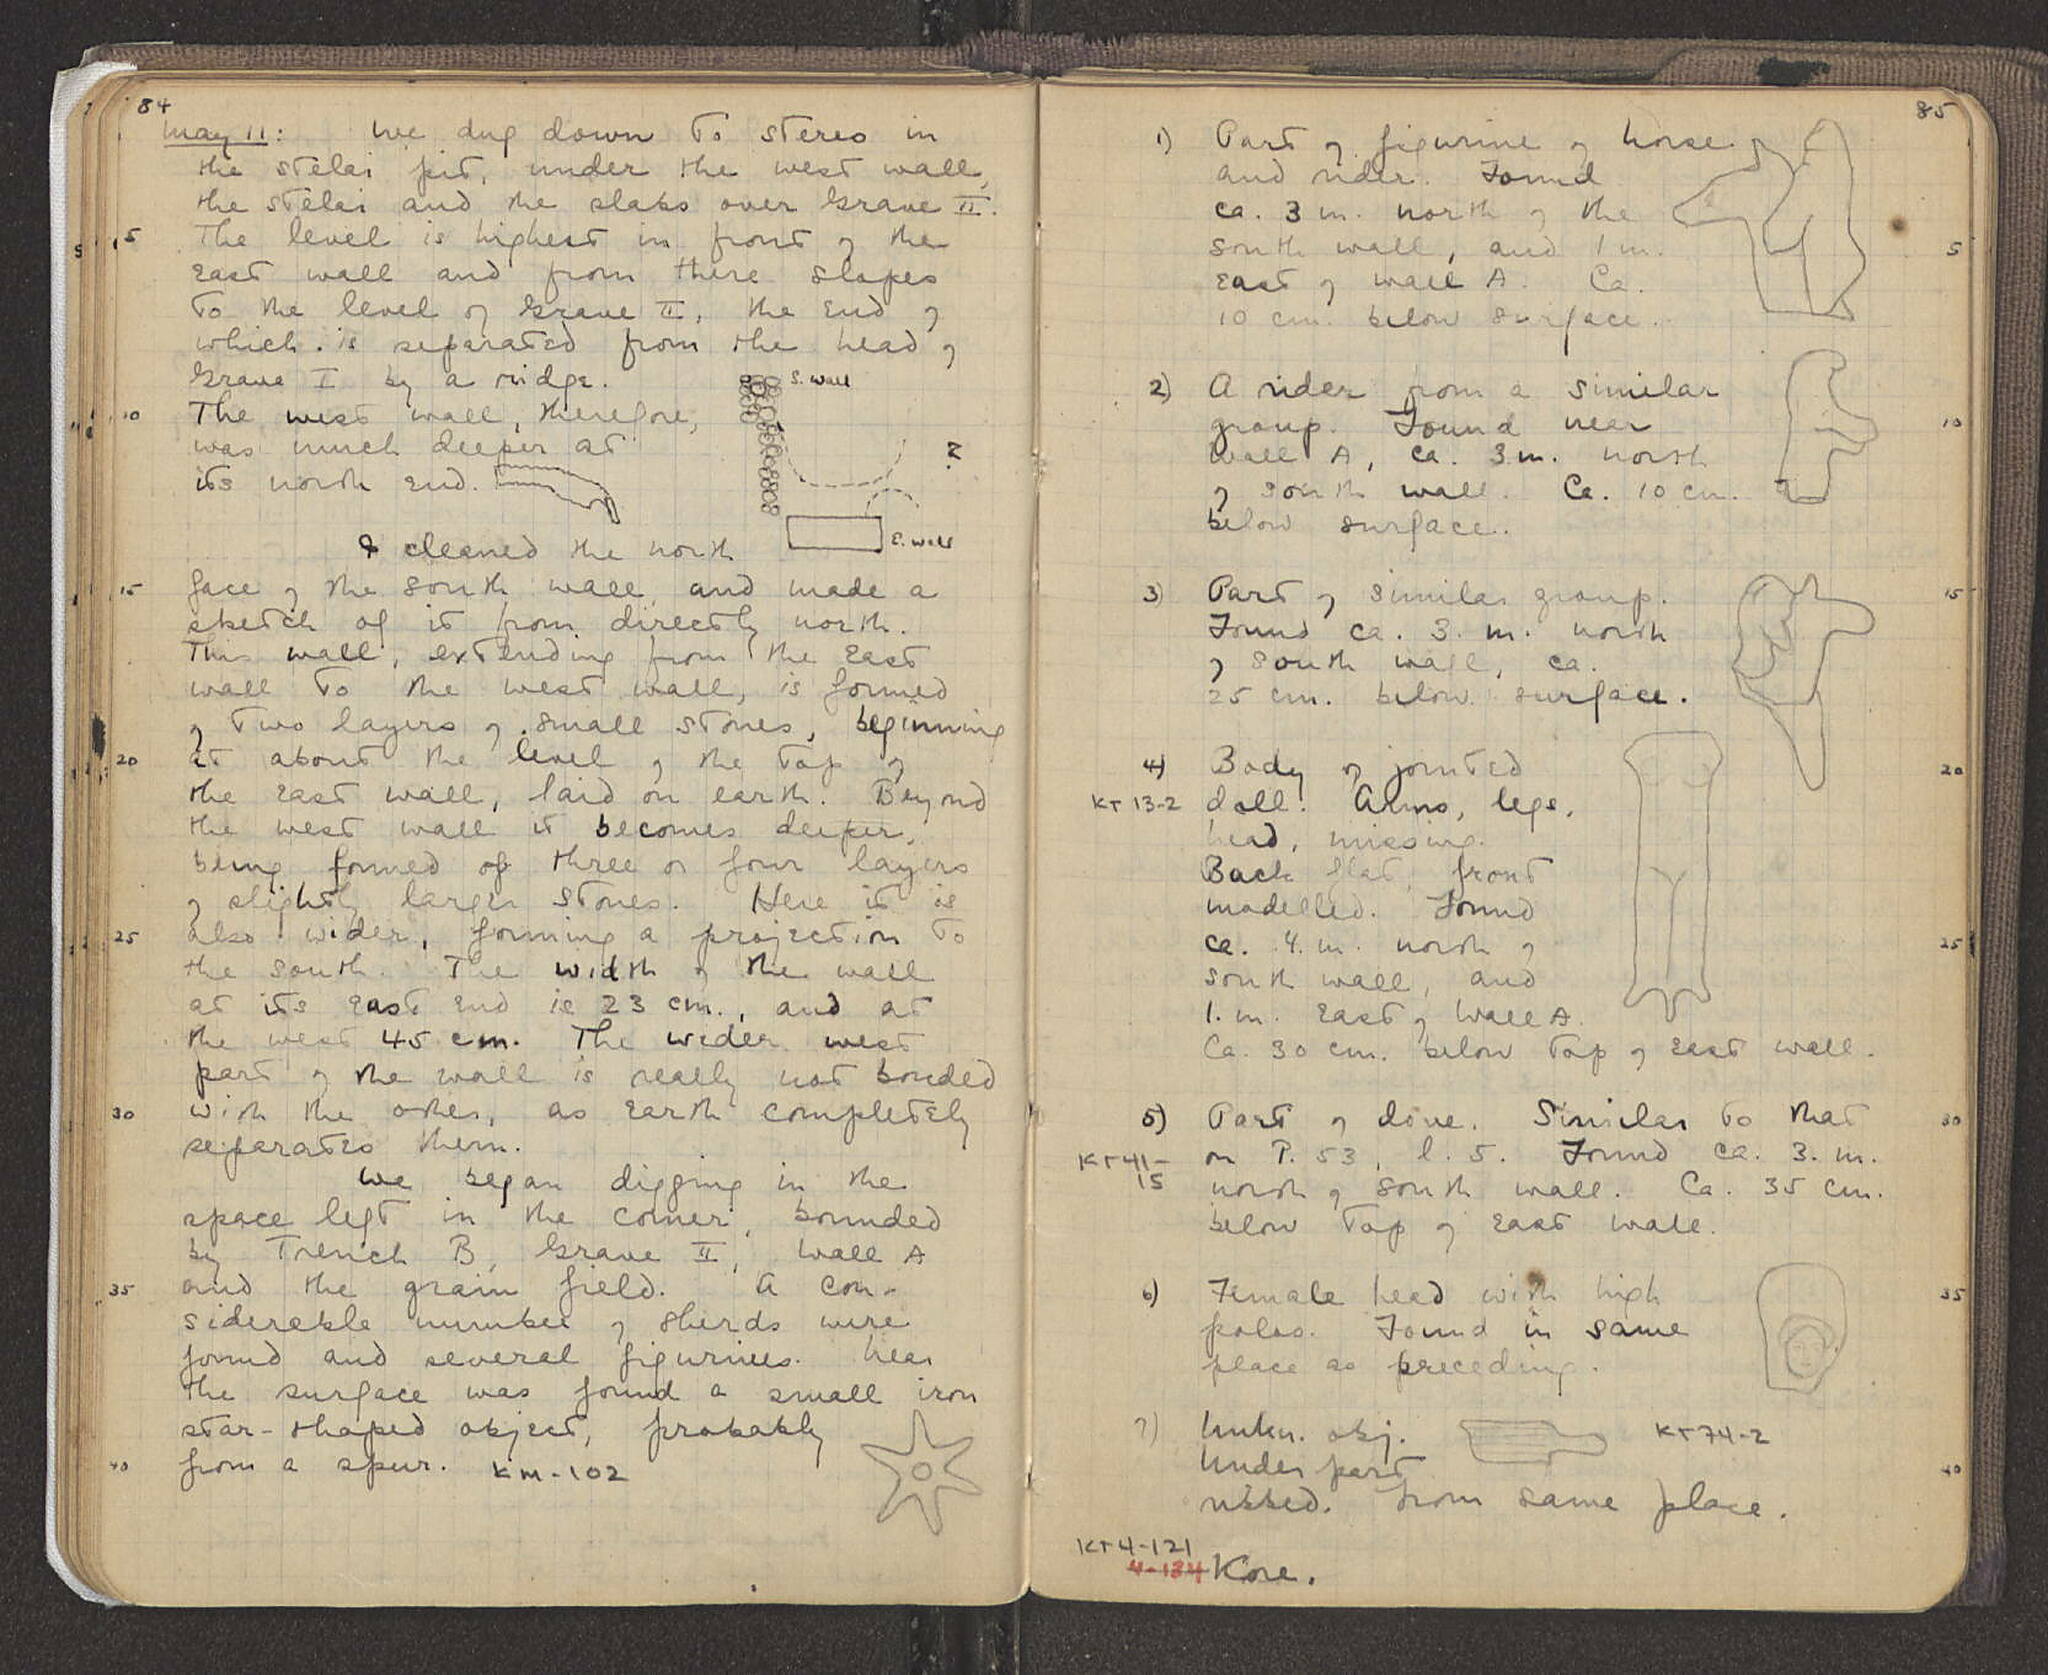 84
May 11: We dug down to stereo in
the stelai pit, under the west wall,
the stelai and the slabs over Grave II.
5 The level is highest in front of the
East wall and from there slopes
to the level of Grave II, the end of
which is separated from the head of
Grave I by a ridge.
S. wall
10 The west wall, therefore,
was much deeper at
?
its north end.
I cleaned the north
E. wall
15 face of the south wall, and made a
sketch of it from directly north.
This wall, extending from the East
wall to the west wall, is formed
of two layers of small stones, beginning
20 at about the level of the top of
the East wall, laid on earth. Beyond
the west wall it becomes deeper,
being formed of three or four layers
of slightly larger stones. Here it is
25 also wider, forming a projection to
the south. The width of the wall
at its East end is 23 cm., and at
the west 45 cm. The wider west
part of the wall is really not bonded
30 with the other, as earth completely
separates them.
We began digging in the
space left in the corner, bounded
by Trench B, Grave II, Wall A
35 and the grain field. A con-
siderable number of sherds were
found and several figurines. Near
the surface was found a small iron
star-shaped object, probably
40 from a spur. KM-102
85
1) Part of figurine of horse
and rider. Found
ca. 3 m. north of the
south wall, and 1 m. 5
East of wall A. Ca.
10 cm. below surface.
2) A rider from a similar
group. Found near 10
Wall A, ca. 3 m. north
of south wall. Ca. 10 cm.
below surface.
3) Part of similar group. 15
Found ca. 3. m. north
of south wall, ca.
25 cm. below surface.
4) Body of jointed 20
KT 13-2 doll. Arms, legs,
head, missing.
Back flat, front
modelled. Found
ca. 4. m. north of 25
south wall, and
1. m. East of Wall A.
Ca. 30 cm. below top of East wall.
5) Part of dove. Similar to that 30
KT 41-15 on P. 53, l. 5. Found ca. 3. m.
north of south wall. Ca. 35 cm.
below top of East wall.
6) Female head with high 35
polos. Found in same
place as preceding.
7) Unkn. obj. KT 74-2
Under part 40
ribbed. From same place.
KT 4-121
4-134 Kore.